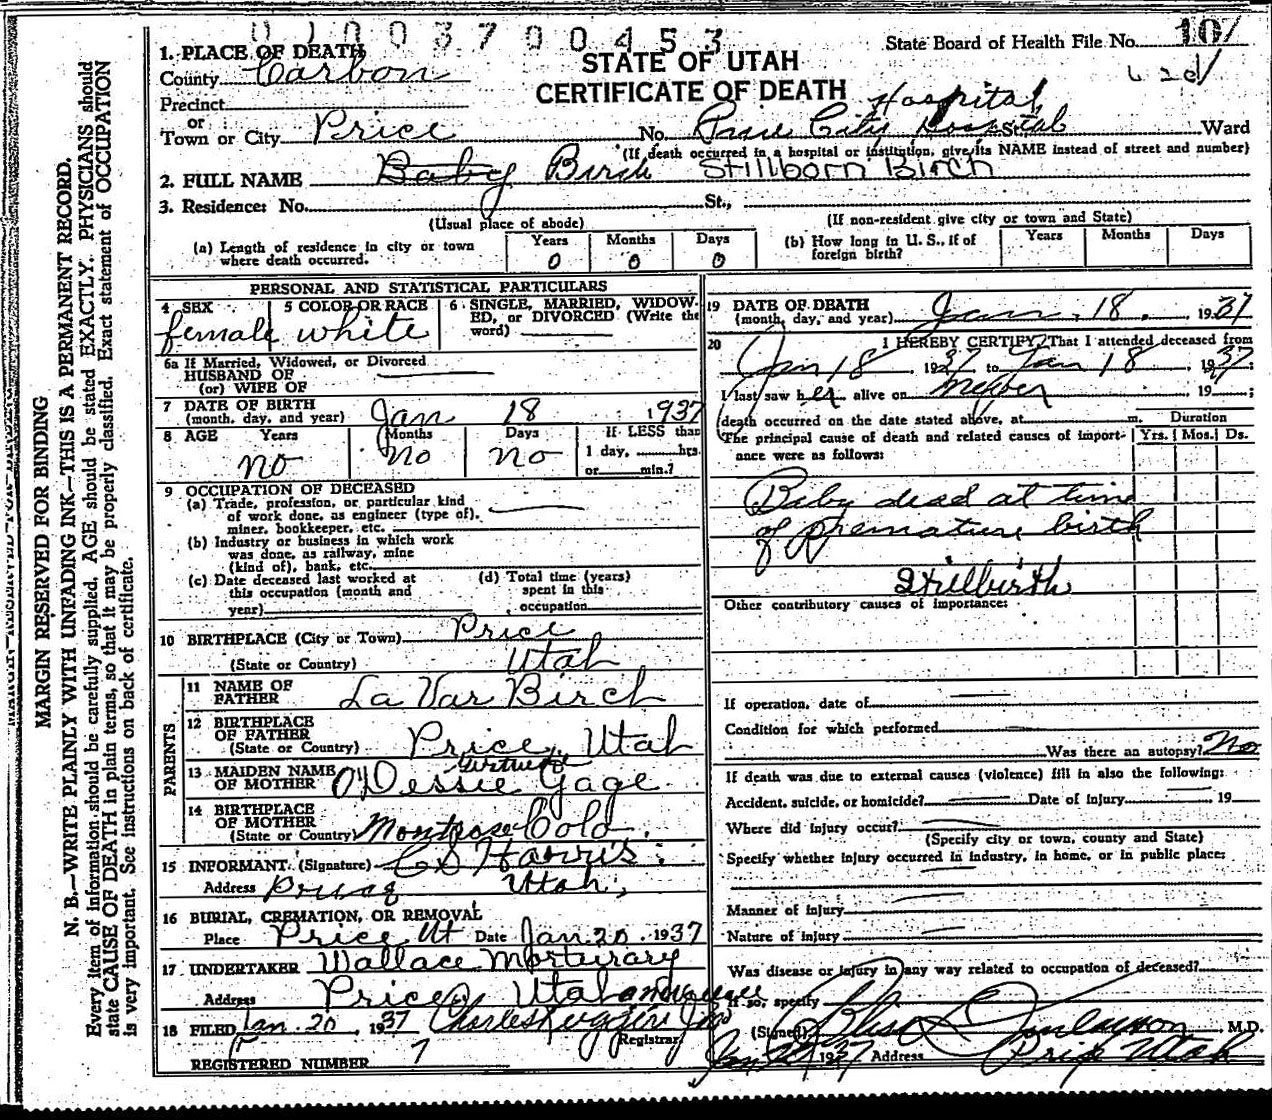 010037 00453
State Board of Health File No. 107
STATE OF UTAH
CERTIFICATE OF DEATH
1. PLACE OF DEATH
County Carbon
Precinct
or
Town or City Price No. Price City Hospital St. Ward
Hospital
(If death occurred in a hospital or institution, give its NAME instead of street and number)
2. FULL NAME Baby Birch Stillborn Birch
3. Residence: No. St.,
(Usual place of abode) (If non-resident give city or town and State)
(a) Length of residence in city or town where death occurred. Years 0 Months 0 Days 0
(b) How long in U. S., if of foreign birth? Years Months Days
PERSONAL AND STATISTICAL PARTICULARS
4 SEX female 5 COLOR OR RACE white 6 SINGLE, MARRIED, WIDOWED, or DIVORCED (Write the word)
6a If Married, Widowed, or Divorced
HUSBAND OF
(or) WIFE OF
7 DATE OF BIRTH (month, day, and year) Jan 18 1937
8 AGE Years no Months no Days no If LESS than 1 day, hrs. or min.?
9 OCCUPATION OF DECEASED
(a) Trade, profession, or particular kind of work done, as engineer (type of), miner, bookkeeper, etc.
(b) Industry or business in which work was done, as railway, mine (kind of), bank, etc.
(c) Date deceased last worked at this occupation (month and year)
(d) Total time (years) spent in this occupation
10 BIRTHPLACE (City or Town) Price
(State or Country) Utah
PARENTS
11 NAME OF FATHER La Var Birch
12 BIRTHPLACE OF FATHER (State or Country) Price, Utah
13 MAIDEN NAME OF MOTHER O'Dessie Gertrude Gage
14 BIRTHPLACE OF MOTHER (State or Country) Montrose Colo.
15 INFORMANT. (Signature) C S Harris
Address Utah,
16 BURIAL, CREMATION, OR REMOVAL
Place Price Ut Date Jan. 20. 1937
17 UNDERTAKER Wallace Morturary
Address Price, Utah
18 FILED Jan. 20, 1937 Charles Ruggeri Jr
Registrar
REGISTERED NUMBER 7
19 DATE OF DEATH (month, day, and year) Jan. 18. 1937
20 I HEREBY CERTIFY, That I attended deceased from
Jan 18, 1937 to Jan 18, 1937.
I last saw her alive on never, 19 ;
death occurred on the date stated above, at m.
The principal cause of death and related causes of importance were as follows:
Duration
Yrs. Mos. Ds.
Baby dead at time
of premature birth
Stillbirth
Other contributory causes of importance:
If operation, date of
Condition for which performed
Was there an autopsy? No
If death was due to external causes (violence) fill in also the following:
Accident, suicide, or homicide? Date of injury 19
Where did injury occur?
(Specify city or town, county and State)
Specify whether injury occurred in industry, in home, or in public place:
Manner of injury
Nature of injury
Was disease or injury in any way related to occupation of deceased?
If so, specify
(Signed) M.D.
1937 Address Price Utah
MARGIN RESERVED FOR BINDING
N. B.—WRITE PLAINLY WITH UNFADING INK—THIS IS A PERMANENT RECORD.
Every item of information should be carefully supplied. AGE should be stated EXACTLY. PHYSICIANS should
state CAUSE OF DEATH in plain terms, so that it may be properly classified. Exact statement of OCCUPATION
is very important. See instructions on back of certificate.